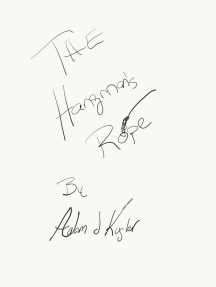 THE
Hangman's
Rope
By
Adam J Kugler